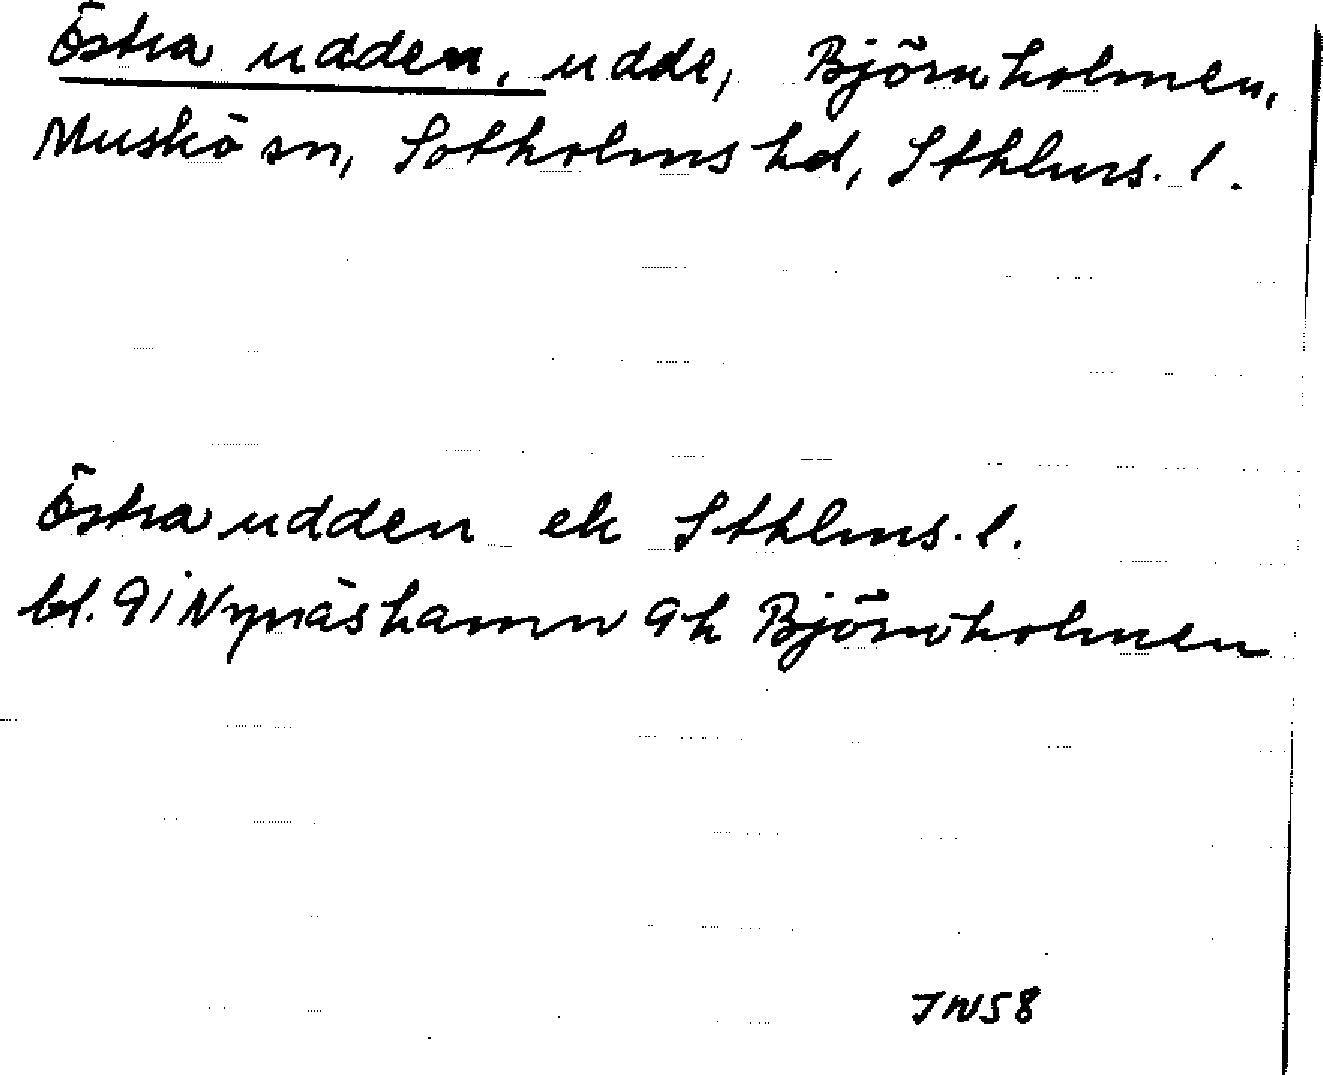 Östra udden, udde, Björnholmen,
Muskö sn, Sotholms hd, Sthlms. l.
Östra udden ek Sthlms. l.
bl. 9 i Nynäshamn 9h Björnholmen
JN58